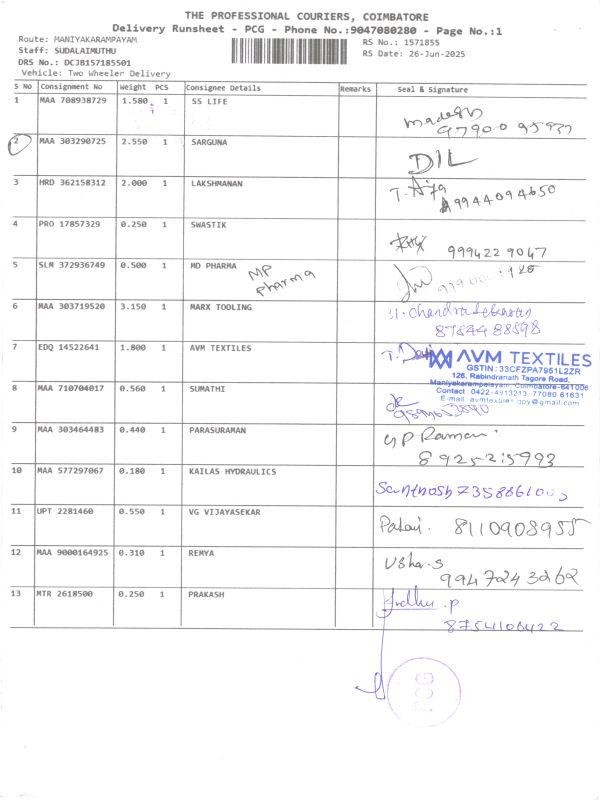 THE PROFESSIONAL COURIERS, COIMBATORE
Delivery Runsheet - PCG - Phone No.:9047080280 - Page No.:1
Route: MANIYAKARAMPAYAM RS No.: 1571855
Staff: SUDALAIMUTHU RS Date: 26-Jun-2025
DRS No.: DCJB157185501
Vehicle: Two Wheeler Delivery
S No Consignment No Weight PCS Consignee Details Remarks Seal & Signature
1 MAA 708938729 1.580 1 SS LIFE
Madesh
2 MAA 303290725 2.550 1 SARGUNA
DIL
3 HRD 362158312 2.000 1 LAKSHMANAN
9944094650
4 PRO 17857329 0.250 1 SWASTIK
9994229047
5 SLM 372936749 0.500 1 MD PHARMA
MP
pharma
6 MAA 303719520 3.150 1 MARX TOOLING
7 EDQ 14522641 1.800 1 AVM TEXTILES
AVM TEXTILES
GSTIN : 33CFZPA7951L2ZR
126, Rabindranath Tagore Road,
Maniyakarampalayam, Coimbatore-641006
Contact : 0422-4913213, 77080 61631
8 MAA 710704017 0.560 1 SUMATHI
9 MAA 303464483 0.440 1 PARASURAMAN
GP Raman
10 MAA 577297067 0.180 1 KAILAS HYDRAULICS
Santhosh
11 UPT 2281460 0.550 1 VG VIJAYASEKAR
8110908955
12 MAA 9000164925 0.310 1 REMYA
Usha.S
9947243262
13 MTR 2618500 0.250 1 PRAKASH
8754106422
PCG